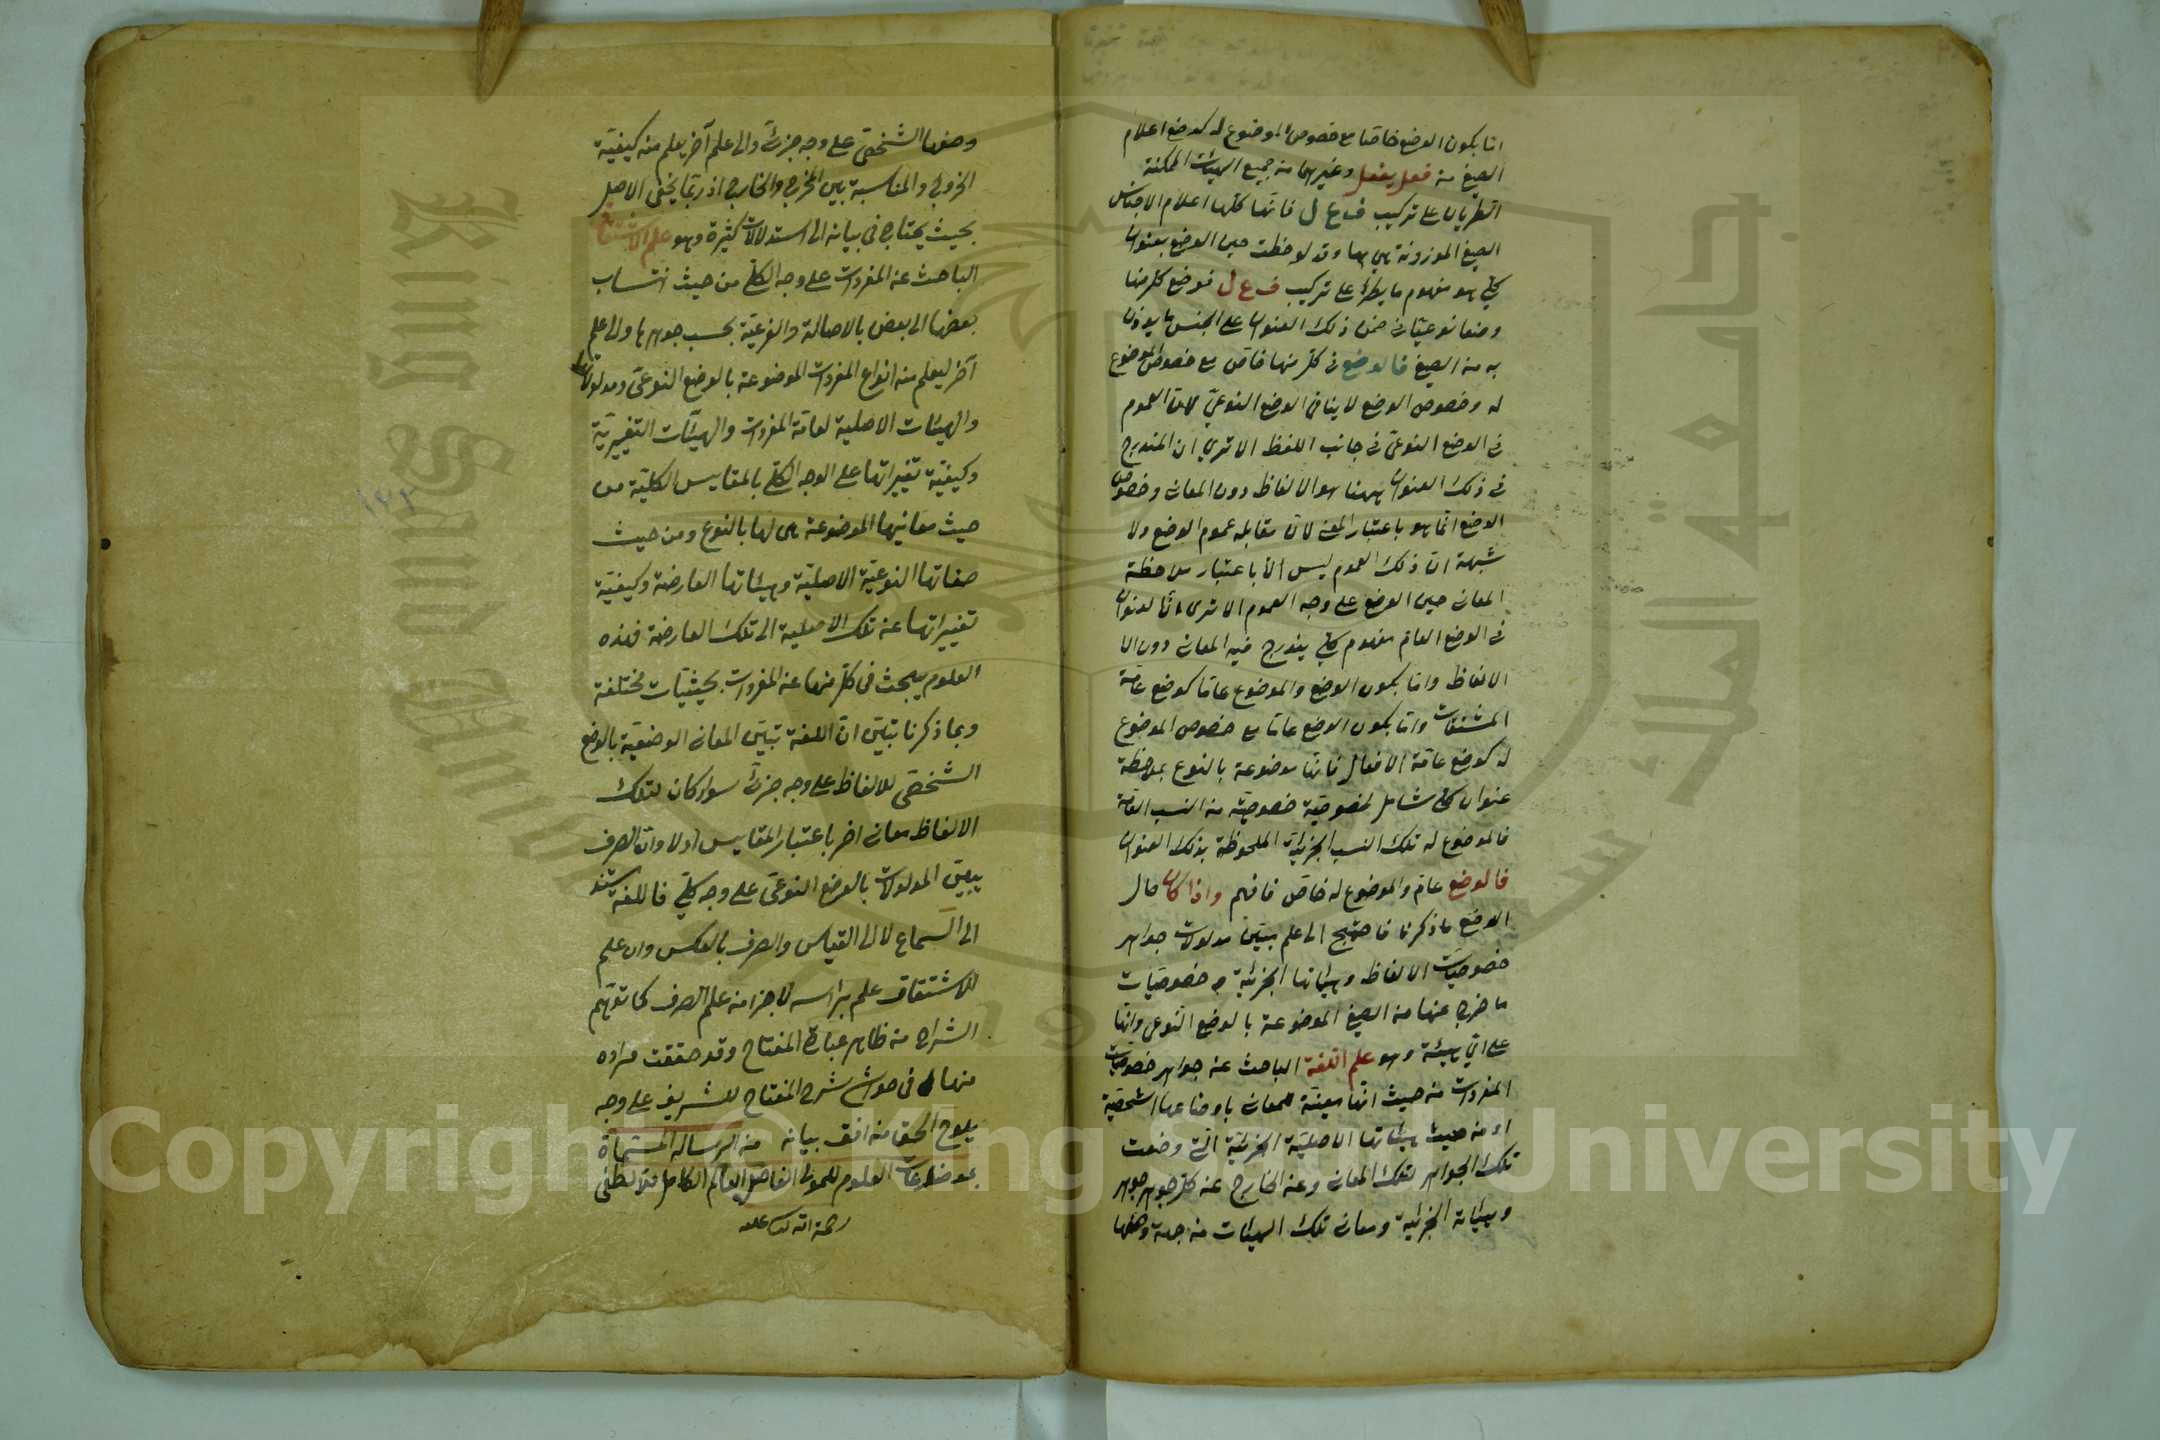 اما بكون الوضع خاصا مع خصوص الموضوع له كوضع اعلام
الصيغ من فعل يفعل وغيرهما من جميع الهيئات الممكنة
الطريان على تركيب ف ع ل فانها كلها اعلام الاجناس
الصيغ الموزونة هي بها وقد لوحظت حين الوضع بعنوان
كلي هو مفهوم ما يطرأ على تركيب ف ع ل فوضع كل منها
وضعا نوعيا في ضمن ذلك العنوان على الجنس ما يوزن
به من الصيغ فالوضع في كل منها خاص مع خصوص الموضوع
له وخصوص الوضع لا ينافي الوضع النوعي لان العموم
في الوضع النوعي في جانب اللفظ الا ترى ان المندرج
في ذلك العنوان ههنا هو الالفاظ دون المعاني وخصوص
الوضع انما هو باعتبار المعنى لان مقابله عموم الوضع ولا
شبهة ان ذلك العموم ليس الا باعتبار ملاحظة
المعاني حين الوضع على وجه العموم الا ترى ان العنوان
في الوضع العام مفهوم كلي يندرج فيه المعاني دون الا
الالفاظ واما بكون الوضع والموضوع عاما كوضع عامة
المشتقات واما بكون الوضع عاما مع خصوص الموضوع
له كوضع عامة الافعال فانها موضوعة بالنوع بملاحظة
عنوان كلي شامل لخصوصية خصوصية من النسب التامة
فالموضوع له تلك النسب الجزئية الملحوظة بذلك العنوان
فالوضع عام والموضوع له خاص فافهم واذا كان حال
الوضع ما ذكرنا فاحتيج الى علم يبين مدلولات جواهر
خصوصيات الالفاظ وهيئاتها الجزئية خصوصيات
ما خرج عنها من الصيغ الموضوعة بالوضع النوعي وانها
على اي هيئة وهو علم اللغة الباحث عن جواهر خصوصيات
المفردات من حيث انها معينة للمعاني باوضاعها الشخصية
او من حيث هيئاتها الاصلية الجزئية التي وضعت
تلك الجواهر لتلك المعاني وعن الخارج عن كل جوهر جوهر
وهيئاته الجزئية ومعاني تلك الهيئات من جهة وضعها
وضعها الشخصي على وجه جزئي والى علم آخر يعلم منه كيفية
الخروج والمناسبة بين المخرج والخارج اذ ربما يخفى الاصل
بحيث يحتاج في بيانه الى استدلالات كثيرة وهو علم الاشتقاق
الباحث عن المفردات على وجه الكلي من حيث انتساب
بعضها الى بعض بالاصالة والفرعية بحسب جوهرها والى علم
آخر ليعلم منه انواع المفردات الموضوعة بالوضع النوعي ومدلولاتها
والهيئات الاصلية لعامة المفردات والهيئات التغييرية
وكيفية تغييراتها على الوجه الكلي بالمقاييس الكلية من
حيث معانيها الموضوعة هي لها بالنوع ومن حيث
صفاتها النوعية الاصلية وهيئاتها العارضة وكيفية
تغييراتها عن تلك الاصلية الى تلك العارضة فهذه
العلوم يبحث في كل منها عن المفردات بحيثيات مختلفة
وبما ذكرنا تبين ان اللغة تبين المعاني الوضعية بالوضع
الشخصي للالفاظ على وجه جزئي سواء كان لتلك
الالفاظ معاني اخر باعتبار المقاييس اولا وان الصرف
يبين المدلولات بالوضع النوعي على وجه كلي فاللغة يستند
الى السماع لا الى القياس والصرف بالعكس وان علم
الاشتقاق علم براسه لا جزء من علم الصرف كما توهم
الشراح من ظاهر عبارة المفتاح وقد حققت مراده
منها في حواشي شرح المفتاح للشريف على وجه
يلوح الحق من افق بيانه من الرسالة المسماة
بموضوعات العلوم للمولى الفاضل العالم الكامل ملا لطفي
رحمة الله تعالى عليه
١٢٢
Copyright © King Saud University
King Saud University
جامعة الملك سعود